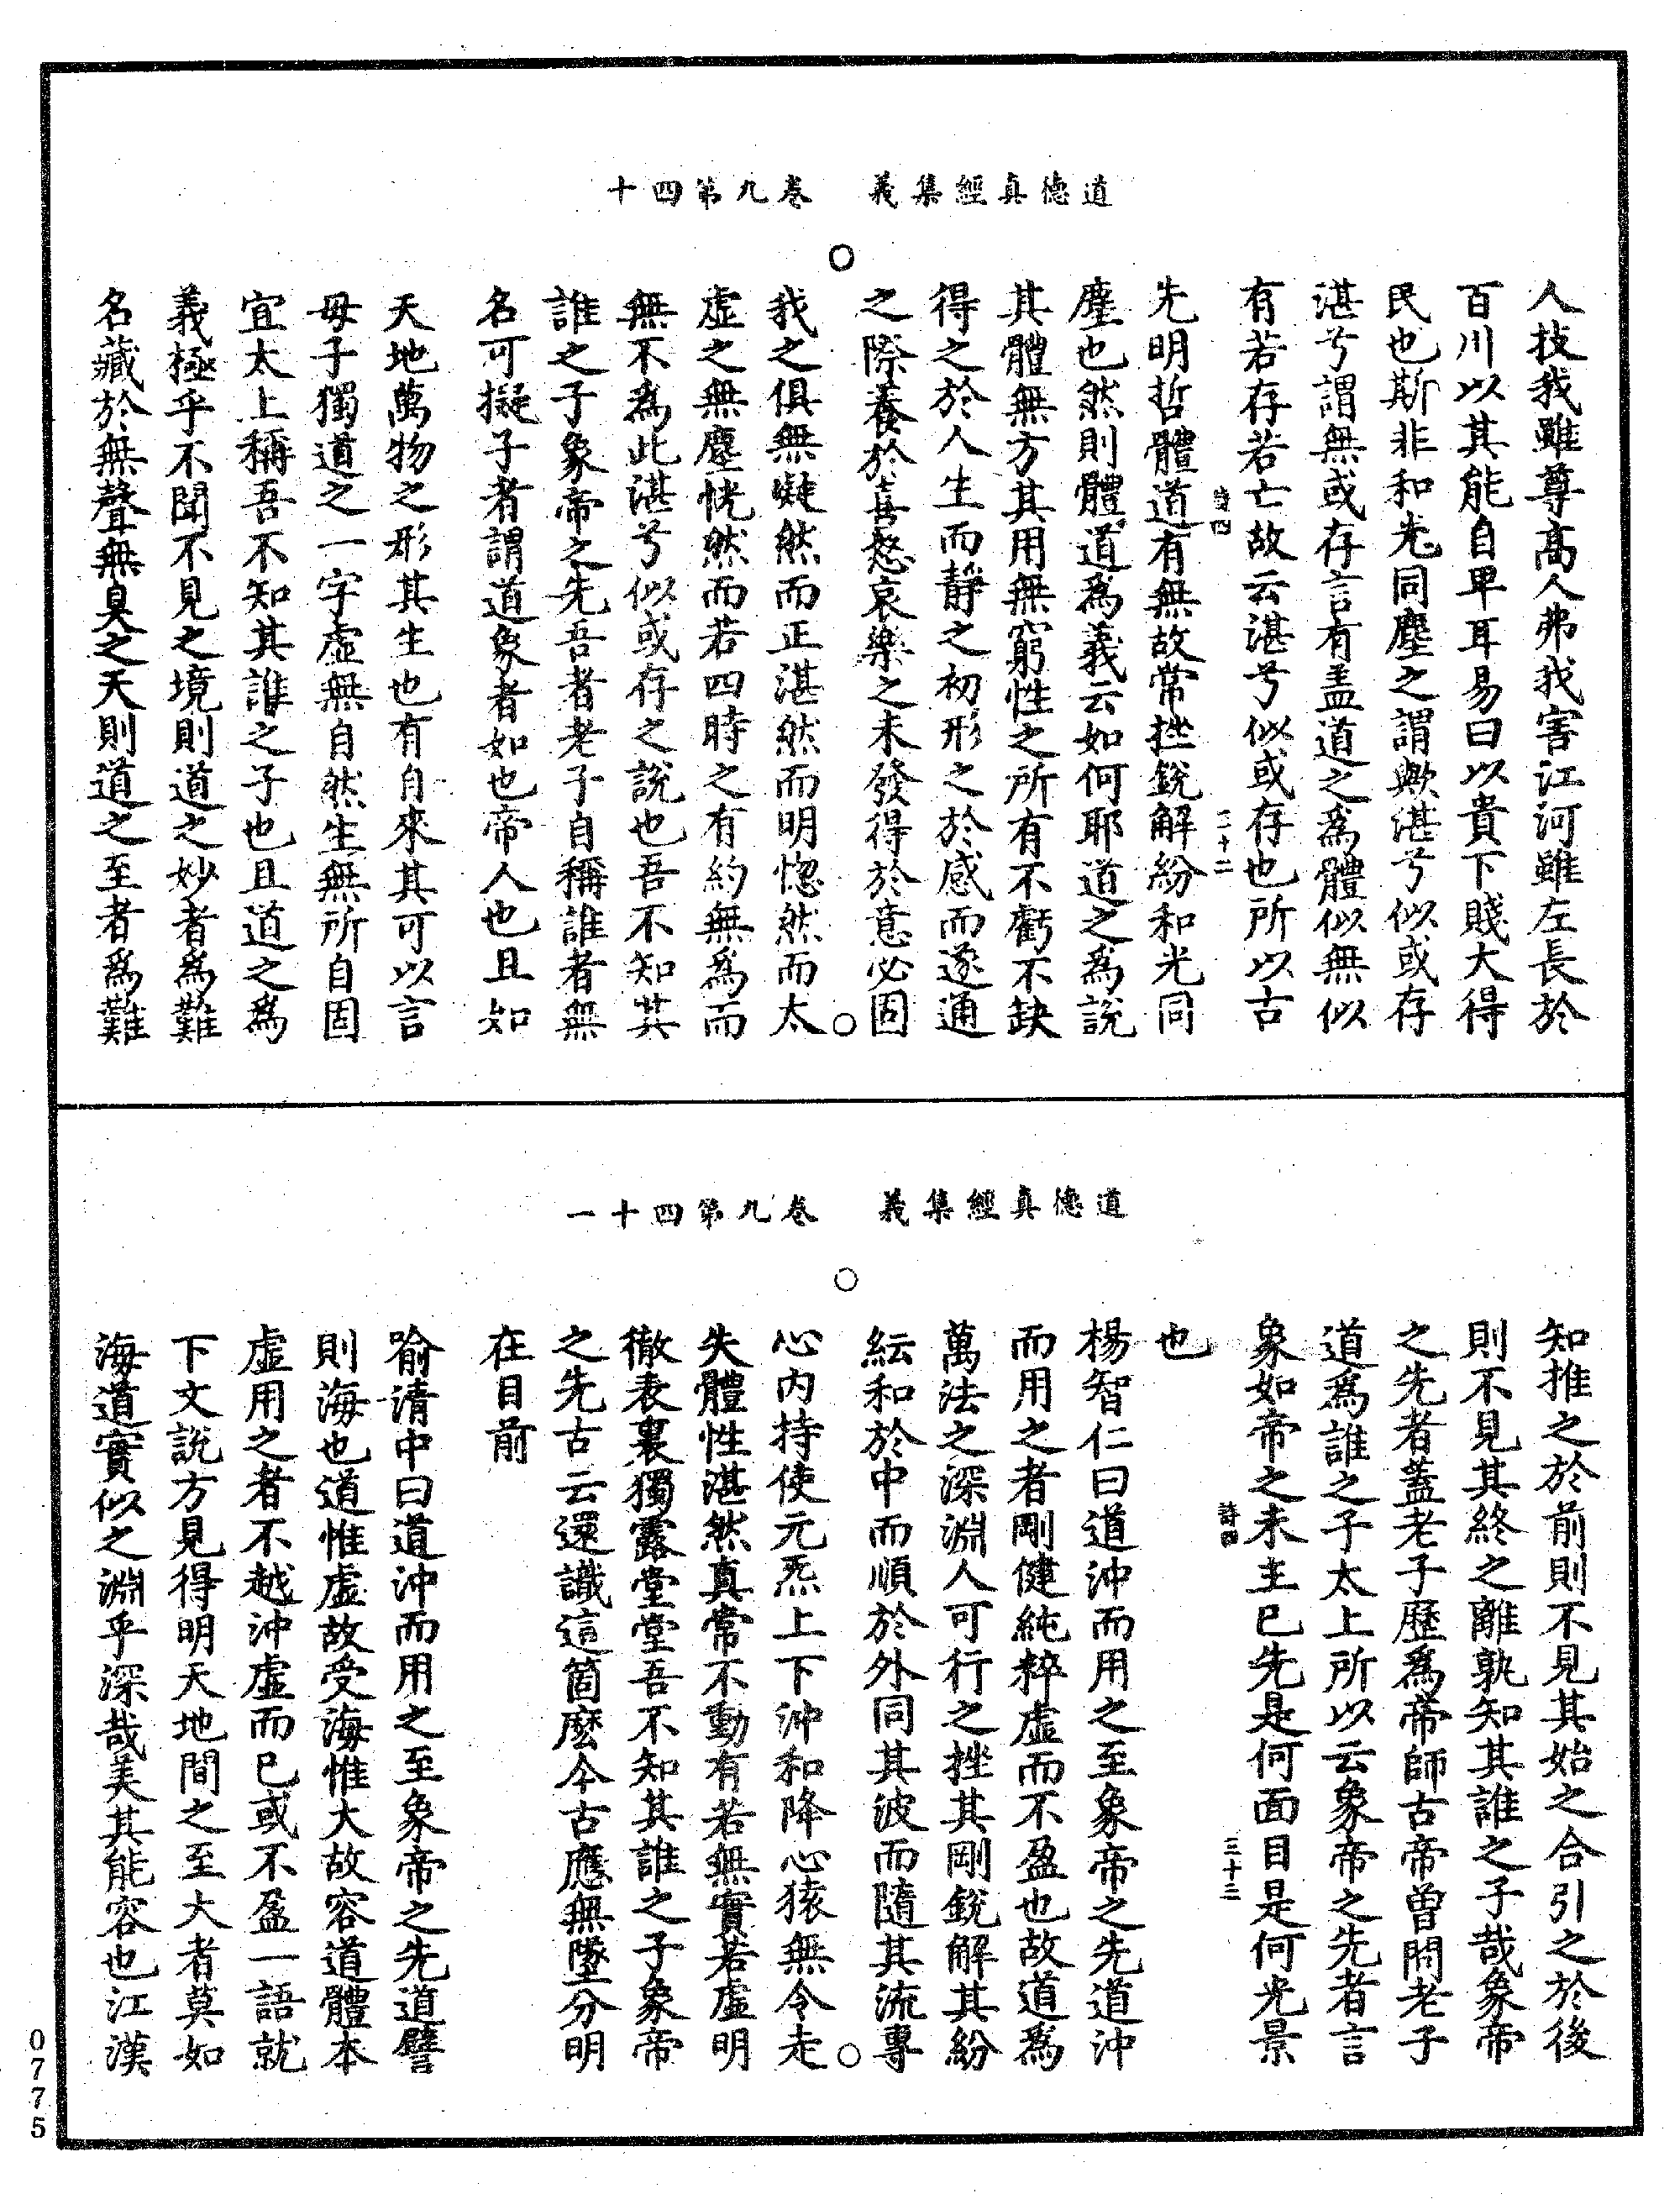 道德真經集義　卷九第四十
人技我雖尊高人弗我害江河雖左長於
百川以其能自卑耳易曰以貴下賤大得
民也斯非和光同塵之謂歟湛兮似或存
湛兮謂無或存言有盖道之為體似無似
有若存若亡故云湛兮似或存也所以古
詩四　三十二
先明哲體道有無故常挫銳解紛和光同
塵也然則體道為義云如何耶道之為說
其體無方其用無窮性之所有不虧不缺
得之於人生而靜之初形之於感而遂通
之際養於喜怒哀樂之未發得於意必固
我之俱無凝然而正湛然而明惚然而太
虛之無塵恍然而若四時之有約無為而
無不為此湛兮似或存之說也吾不知其
誰之子象帝之先吾者老子自稱誰者無
名可擬子者謂道象者如也帝人也且如
天地萬物之形其生也有自來其可以言
母子獨道之一字虛無自然生無所自固
宜太上稱吾不知其誰之子也且道之為
義極乎不聞不見之境則道之妙者為難
名藏於無聲無臭之天則道之至者為難
道德真經集義　卷九第四十一
知推之於前則不見其始之合引之於後
則不見其終之離孰知其誰之子哉象帝
之先者蓋老子歷為帝師古帝曾問老子
道為誰之子太上所以云象帝之先者言
象如帝之未主已先是何面目是何光景
詩四　三十三
也
楊智仁曰道沖而用之至象帝之先道沖
而用之者剛健純粹虛而不盈也故道為
萬法之深淵人可行之挫其剛銳解其紛
紜和於中而順於外同其波而隨其流專
心內持使元炁上下沖和降心猿無令走
失體性湛然真常不動有若無實若虛明
徹表裏獨露堂堂吾不知其誰之子象帝
之先古云還識這箇麽今古應無墜分明
在目前
喻清中曰道沖而用之至象帝之先道譬
則海也道惟虛故受海惟大故容道體本
虛用之者不越沖虛而已或不盈一語就
下文說方見得明天地間之至大者莫如
海道實似之淵乎深哉美其能容也江漢
0775